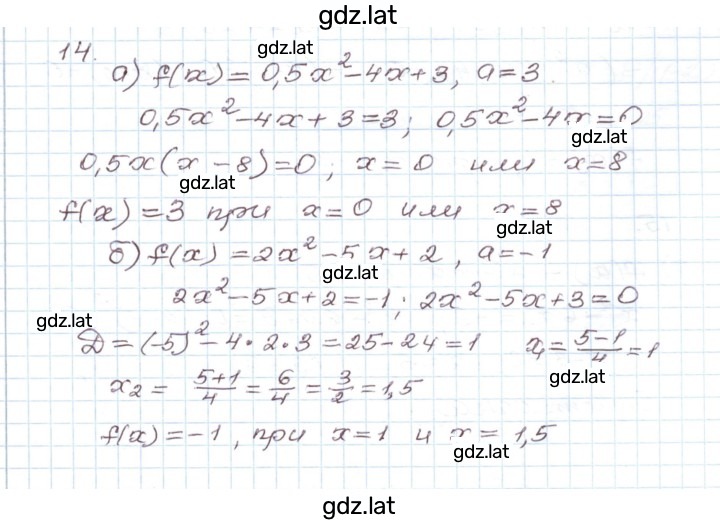 gdz.lat
14.
gdz.lat
а) f(x) = 0,5x² - 4x + 3, a = 3.
0,5x² - 4x + 3 = 3; 0,5x² - 4x = 0
gdz.lat
0,5x(x - 8) = 0; x = 0 или x = 8
gdz.lat
f(x) = 3 при x = 0 или x = 8
gdz.lat
б) f(x) = 2x² - 5x + 2, a = -1
gdz.lat
2x² - 5x + 2 = -1; 2x² - 5x + 3 = 0
gdz.lat
Д = (-5)² - 4 · 2 · 3 = 25 - 24 = 1 x₁ = (5-1)/4 = 1
gdz.lat
x₂ = (5+1)/4 = 6/4 = 3/2 = 1,5
f(x) = -1, при x = 1 и x = 1,5
gdz.lat
gdz.lat